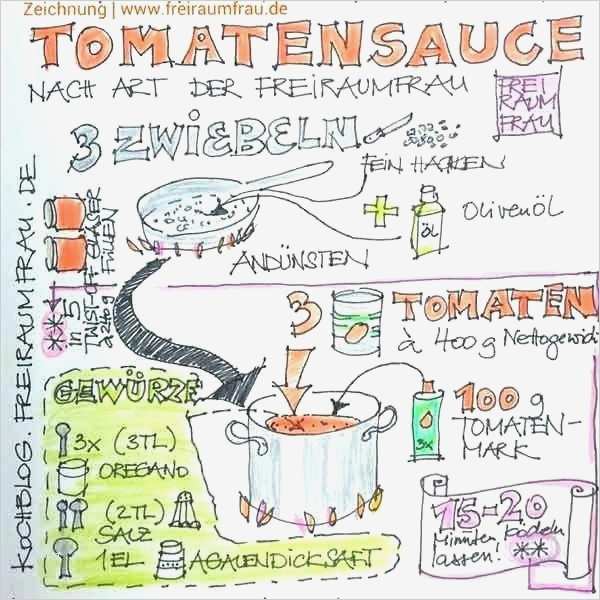 Zeichnung | www.freiraumfrau.de
TOMATENSAUCE
NACH ART DER FREIRAUMFRAU
FREI
RAUM
FRAU
3 ZWIEBELN
FEIN HACKEN
+
ÖL
OLIVENÖL
ANDÜNSTEN
KOCHBLOG.FREIRAUMFRAU.DE
** in 5
TWIST-OFF-GLÄSER
à 240 g
FÜLLEN
3 TOMATEN
à 400 g Nettogewicht
100 g
TOMATEN-
MARK
3x
GEWÜRZE
3x (3TL)
OREGANO
(2TL)
SALZ
1EL AGAVENDICKSAFT
15-20
Minuten köcheln
lassen! **